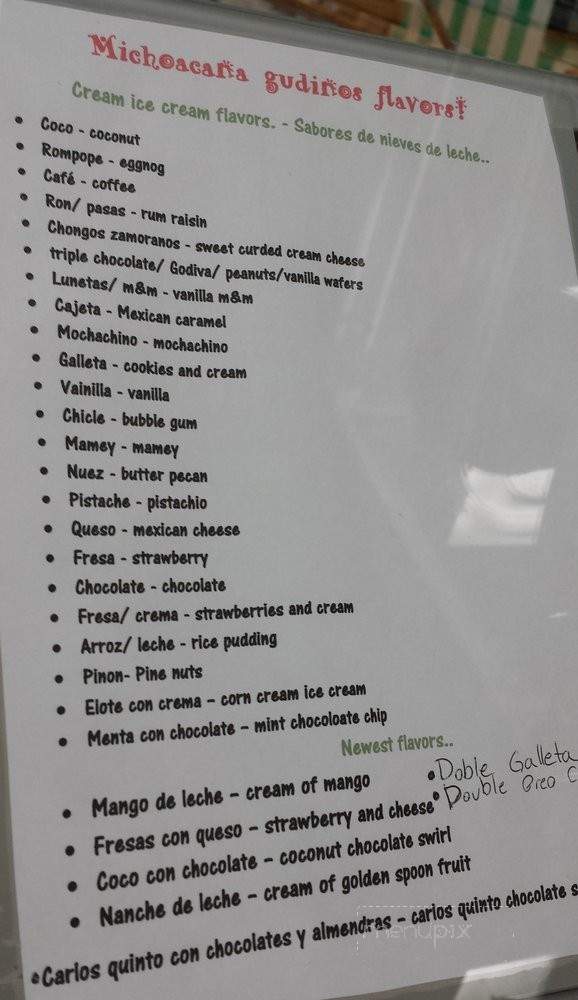 Michoacana gudinos flavors!
Cream ice cream flavors. - Sabores de nieves de leche..
• Coco - coconut
• Rompope - eggnog
• Café - coffee
• Ron/ pasas - rum raisin
• Chongos zamoranos - sweet curded cream cheese
• triple chocolate/ Godiva/ peanuts/vanilla wafers
• Lunetas/ m&m - vanilla m&m
• Cajeta - Mexican caramel
• Mochachino - mochachino
• Galleta - cookies and cream
• Vainilla - vanilla
• Chicle - bubble gum
• Mamey - mamey
• Nuez - butter pecan
• Pistache - pistachio
• Queso - mexican cheese
• Fresa - strawberry
• Chocolate - chocolate
• Fresa/ crema - strawberries and cream
• Arroz/ leche - rice pudding
• Pinon- Pine nuts
• Elote con crema – corn cream ice cream
• Menta con chocolate – mint chocoloate chip
Newest flavors..
• Mango de leche – cream of mango
• Fresas con queso – strawberry and cheese
• Coco con chocolate – coconut chocolate swirl
• Nanche de leche – cream of golden spoon fruit
• Carlos quinto con chocolates y almendras – carlos quinto chocolate s
• Doble Galleta
• Double Oreo C
menupix